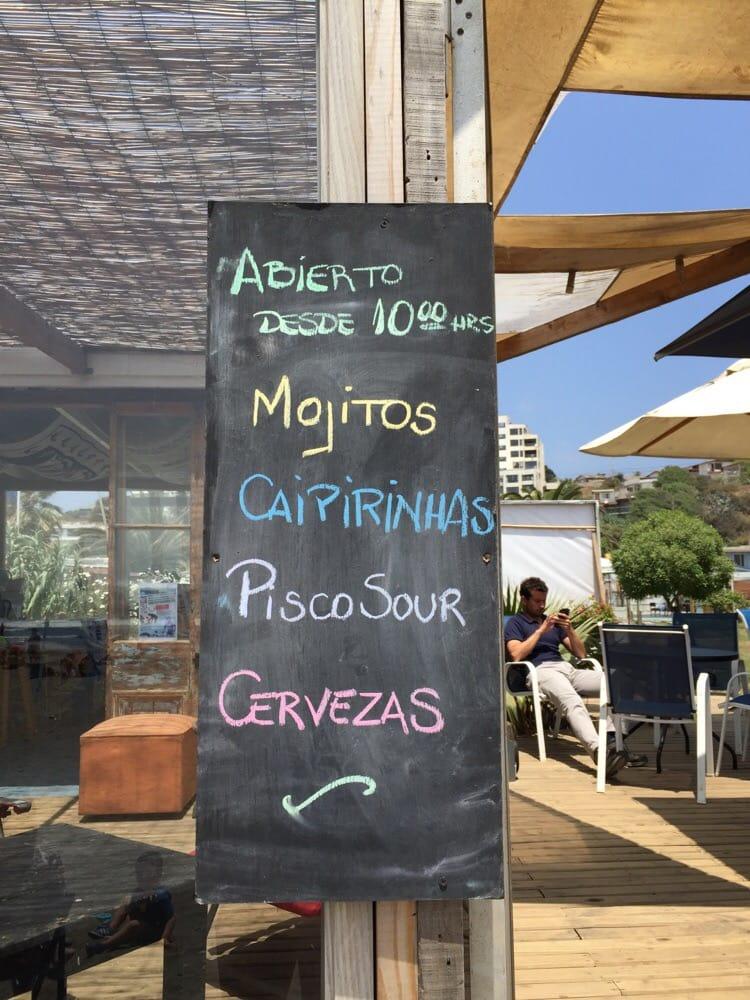 ABIERTO
DESDE 10⁰⁰ HRS
MOJITOS
CAIPIRINHAS
PISCO SOUR
CERVEZAS